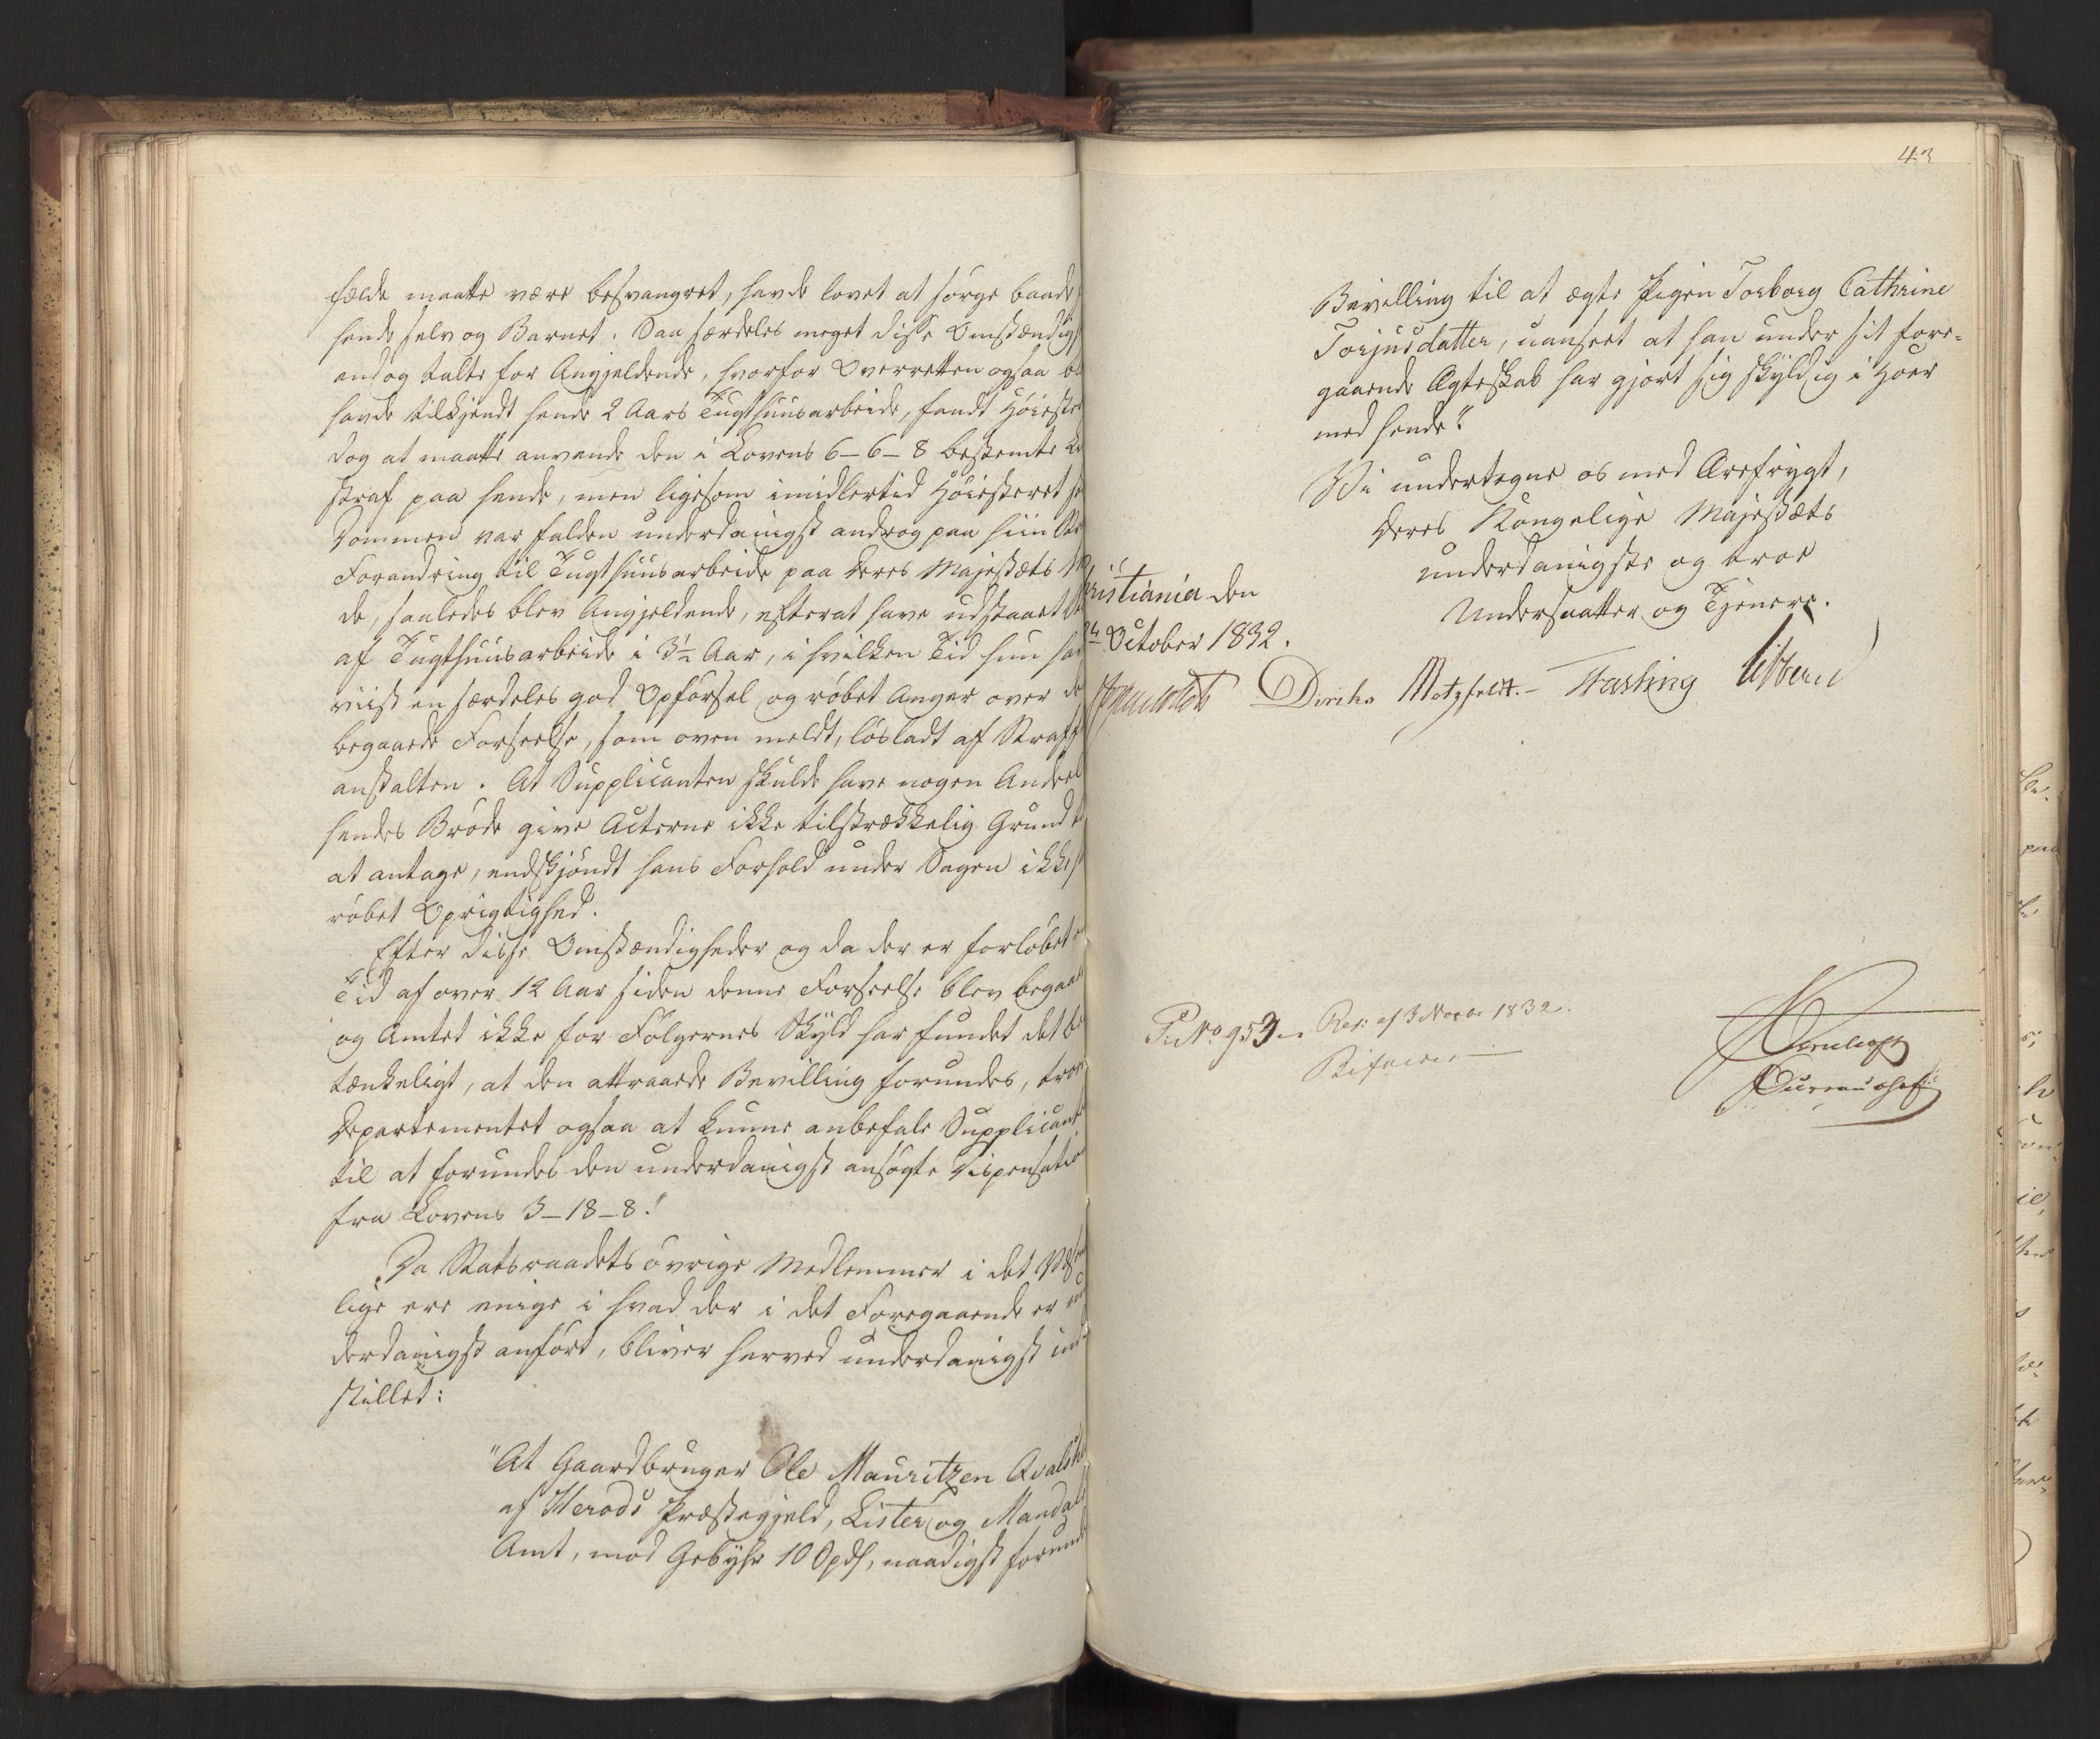 fælde maatte være besvangret, havde lovet at sörge baade
hende selv og Barnet. Saa særdeles meget disse Omstændigh
endog talte for Angjeldende, hvorfor Overretten ogsaa
havde tilkjendt hende 2 Aars Tugthuusarbeide, fandt Höieste
dog at maatte anvende den i Lovens 6-6-8 bestemte
straf paa hende, men ligesom imidlertid Höiesteret
Dommen var falden underdanigst androg paa hiin
Forandring til Tugthuusarbeide paa Deres Majestæts
de, saaledes blev Angjeldende, efterat have udstaaet
af Tugthuusarbeide i 3½ Aar, i hvilken Tid hun har
viist en særdeles god Opförsel og röbet Anger over
begaaede Forseelse, som oven meldt, lösladt af Straf
anstalten. At Supplicanten skulde have nogen Andeel
hendes Bröde give Acterne ikke tilstrækkelig Grund
at antage, endskjöndt hans Forhold under Sagen ikke
röbet Oprigtighed.
Efter disse Omstændigheder og da der er forlöbet
Tid af over 12 Aar siden denne Forseelse blev begaa
og Amtet ikke for Fölgernes Skyld har fundet det be
tænkeligt, at den attraaede Bevilling forundes, troer
Departementet ogsaa at kunne anbefale Supplicant
til at forundes den underdanigst ansögte Dispensation
fra Lovens 3-18-8."
Da Statsraadets övrige Medlemmer i det Væsent
lige ere enige i hvad der i det Foregaaende er un
derdanigst anfört, bliver herved underdanigst ind
stillet:
"At Gaardbruger Ole Mauritzen
af Herods Præstegjeld, Lister og Mandals
Amt, mod Gebyhr 10 Spdl, naadigst forund
43
Bevilling til at ægte Pigen Torborg Cathrine
Torjusdatter, uanseet at han under sit fore-
gaaende Ægteskab har gjort sig skyldig i Hoer
med hende".
Vi undertegne os med Ærefrygt,
Deres Kongelige Majestæts
underdanigste og troe
Undersaatter og Tjenere.
ristiania den
October 1832.
Diriks Motzfeldt. - Fasting
No 953. Res: af 3 Novbr 1832.
Bifaldes
Bureauchef